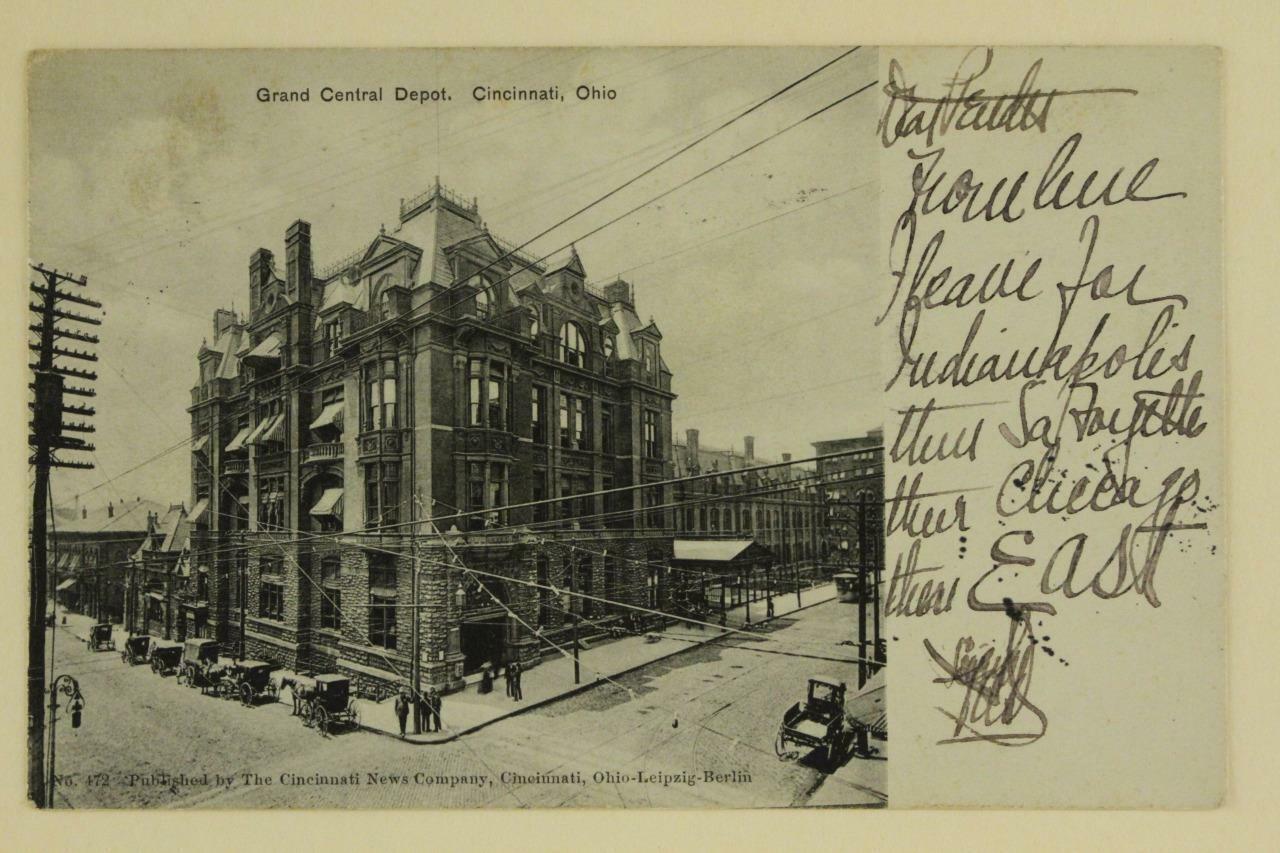 Grand Central Depot. Cincinnati, Ohio
From here
I leave for
Indianapolis
then La Fayette
then Chicago
then East
No. 472 Published by The Cincinnati News Company, Cincinnati, Ohio-Leipzig-Berlin